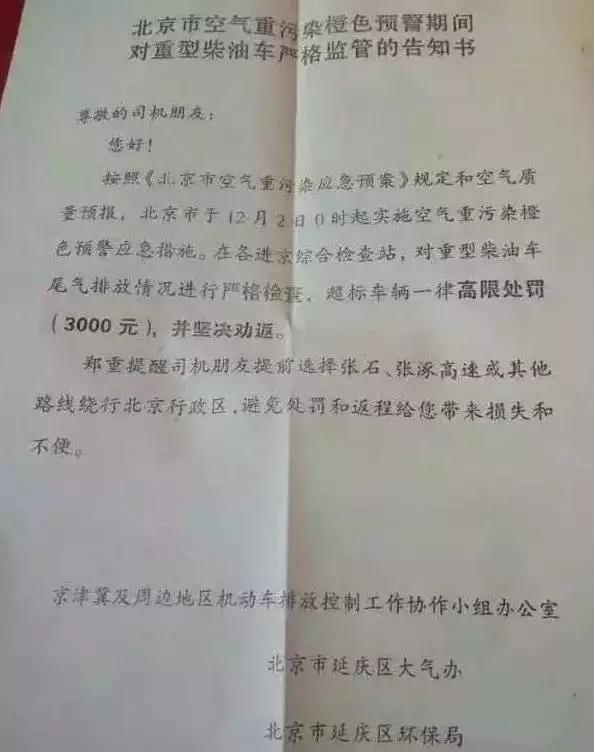 北京市空气重污染橙色预警期间
对重型柴油车严格监管的告知书
尊敬的司机朋友：
您好！
按照《北京市空气重污染应急预案》规定和空气质
量预报，北京市于12月2日0时起实施空气重污染橙
色预警应急措施。在各进京综合检查站，对重型柴油车
尾气排放情况进行严格检查，超标车辆一律高限处罚
（3000元），并坚决劝返。
郑重提醒司机朋友提前选择张石、张涿高速或其他
路线绕行北京行政区，避免处罚和返程给您带来损失和
不便。
京津冀及周边地区机动车排放控制工作协作小组办公室
北京市延庆区大气办
北京市延庆区环保局